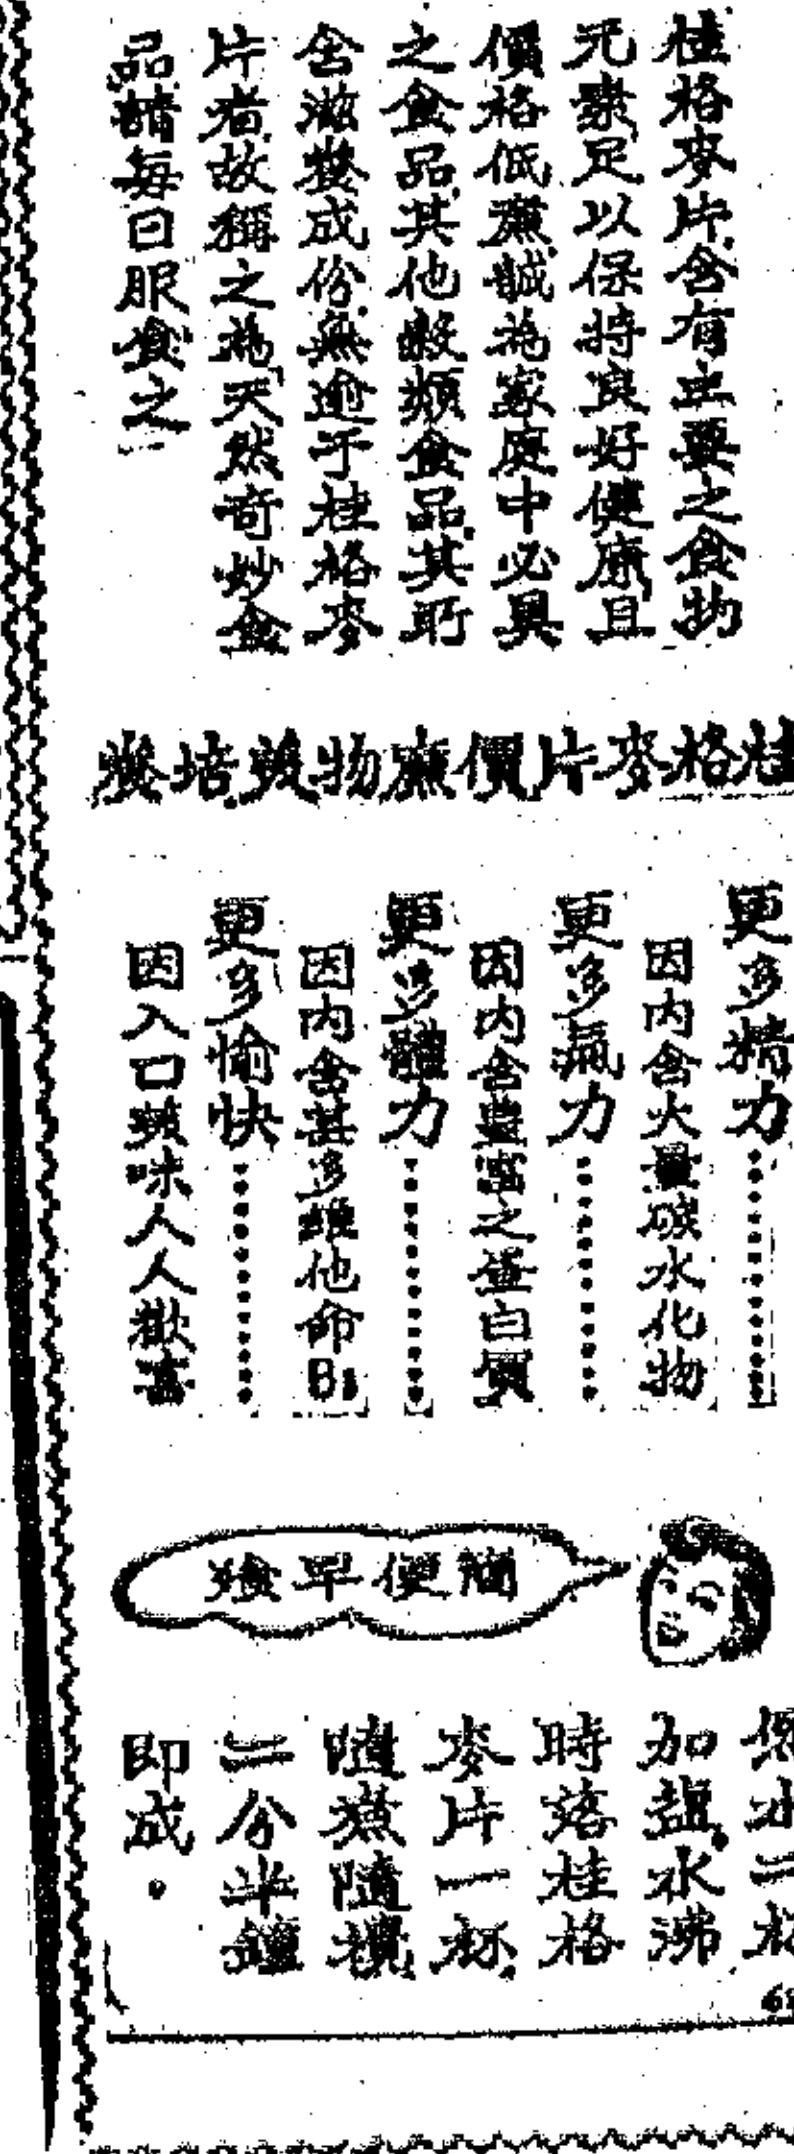 桂格麥片含有主要之食物
元素足以保持良好健康且
價格低廉誠為家庭中必具
之食品其他穀類食品其所
含滋養成份無逾于桂格麥
片者故稱之為天然奇妙食
品請每日服食之
桂格麥片價廉物美培養
更多精力
因內含大量碳水化物
更多氣力
因內含豐富之蛋白質
更多體力
因內含甚多維他命B1
更多愉快
因入口美味人人歡喜
簡便早餐
水二杯
加鹽水沸
時落桂格
麥片一杯
隨煮隨攪
二分半鐘
即成。